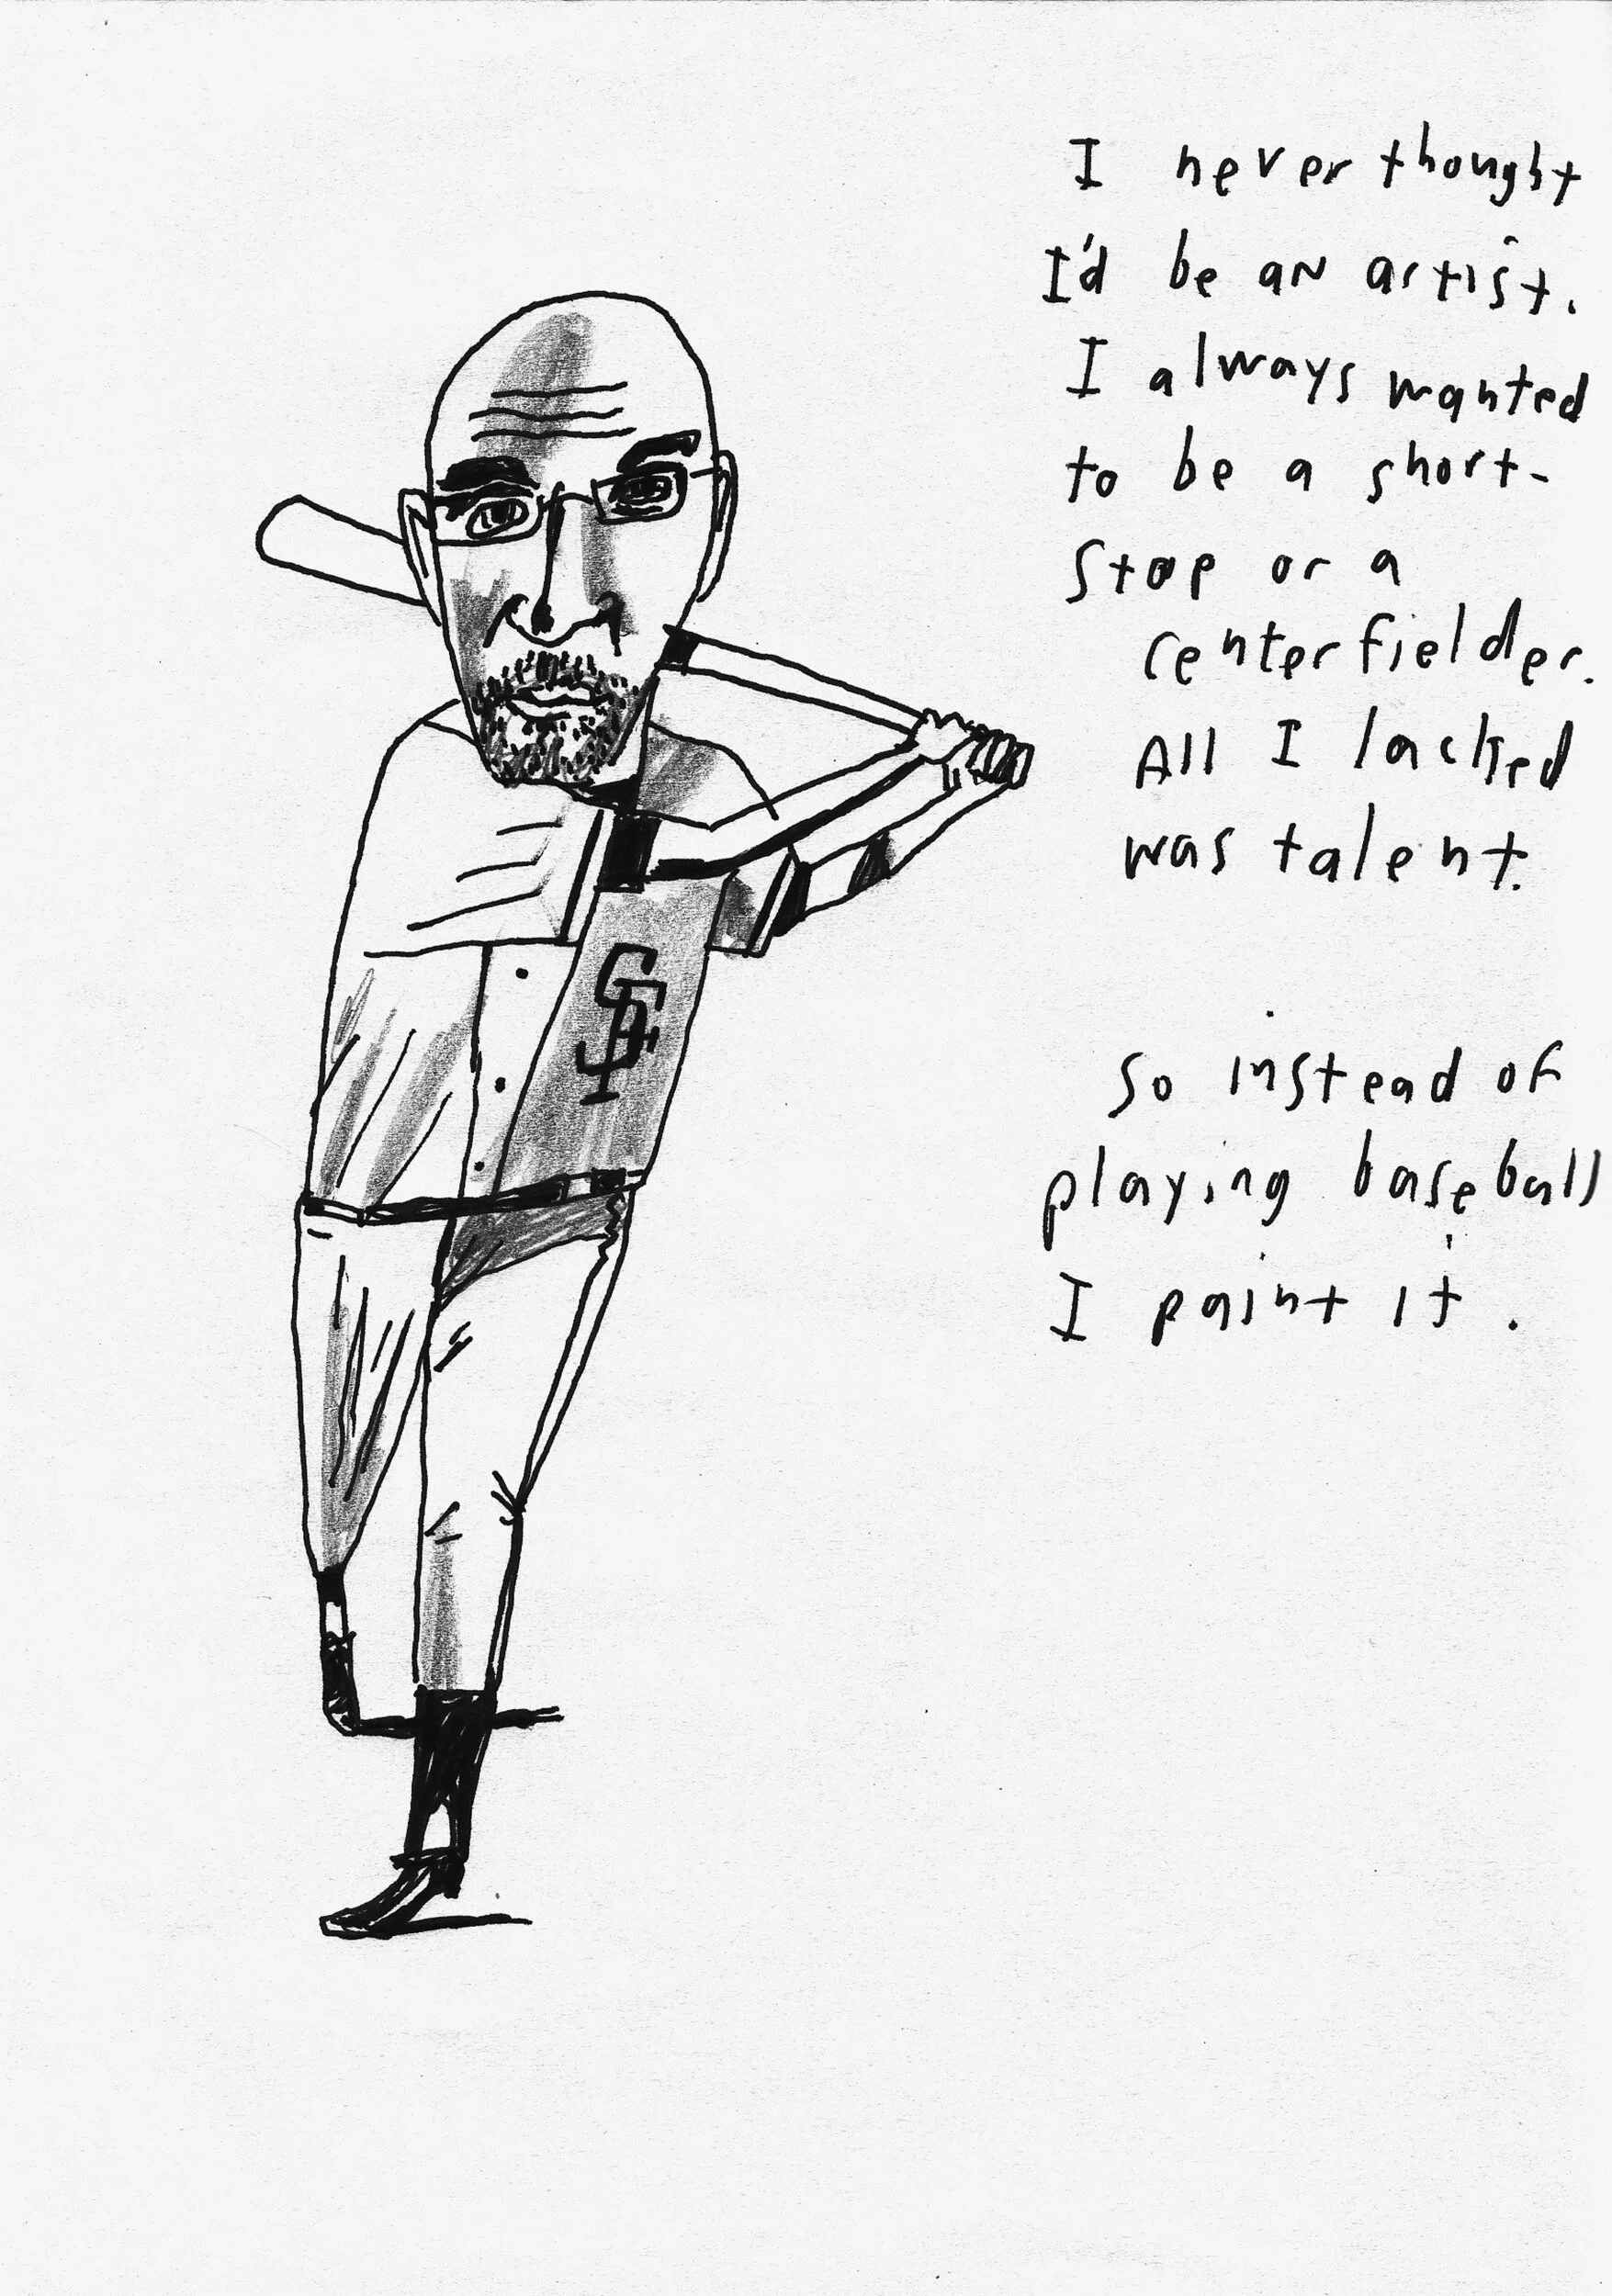 I never thought
I'd be an artist.
I always wanted
to be a short-
stop or a
centerfielder.
All I lacked
was talent.
So instead of
playing baseball
I paint it.
SF